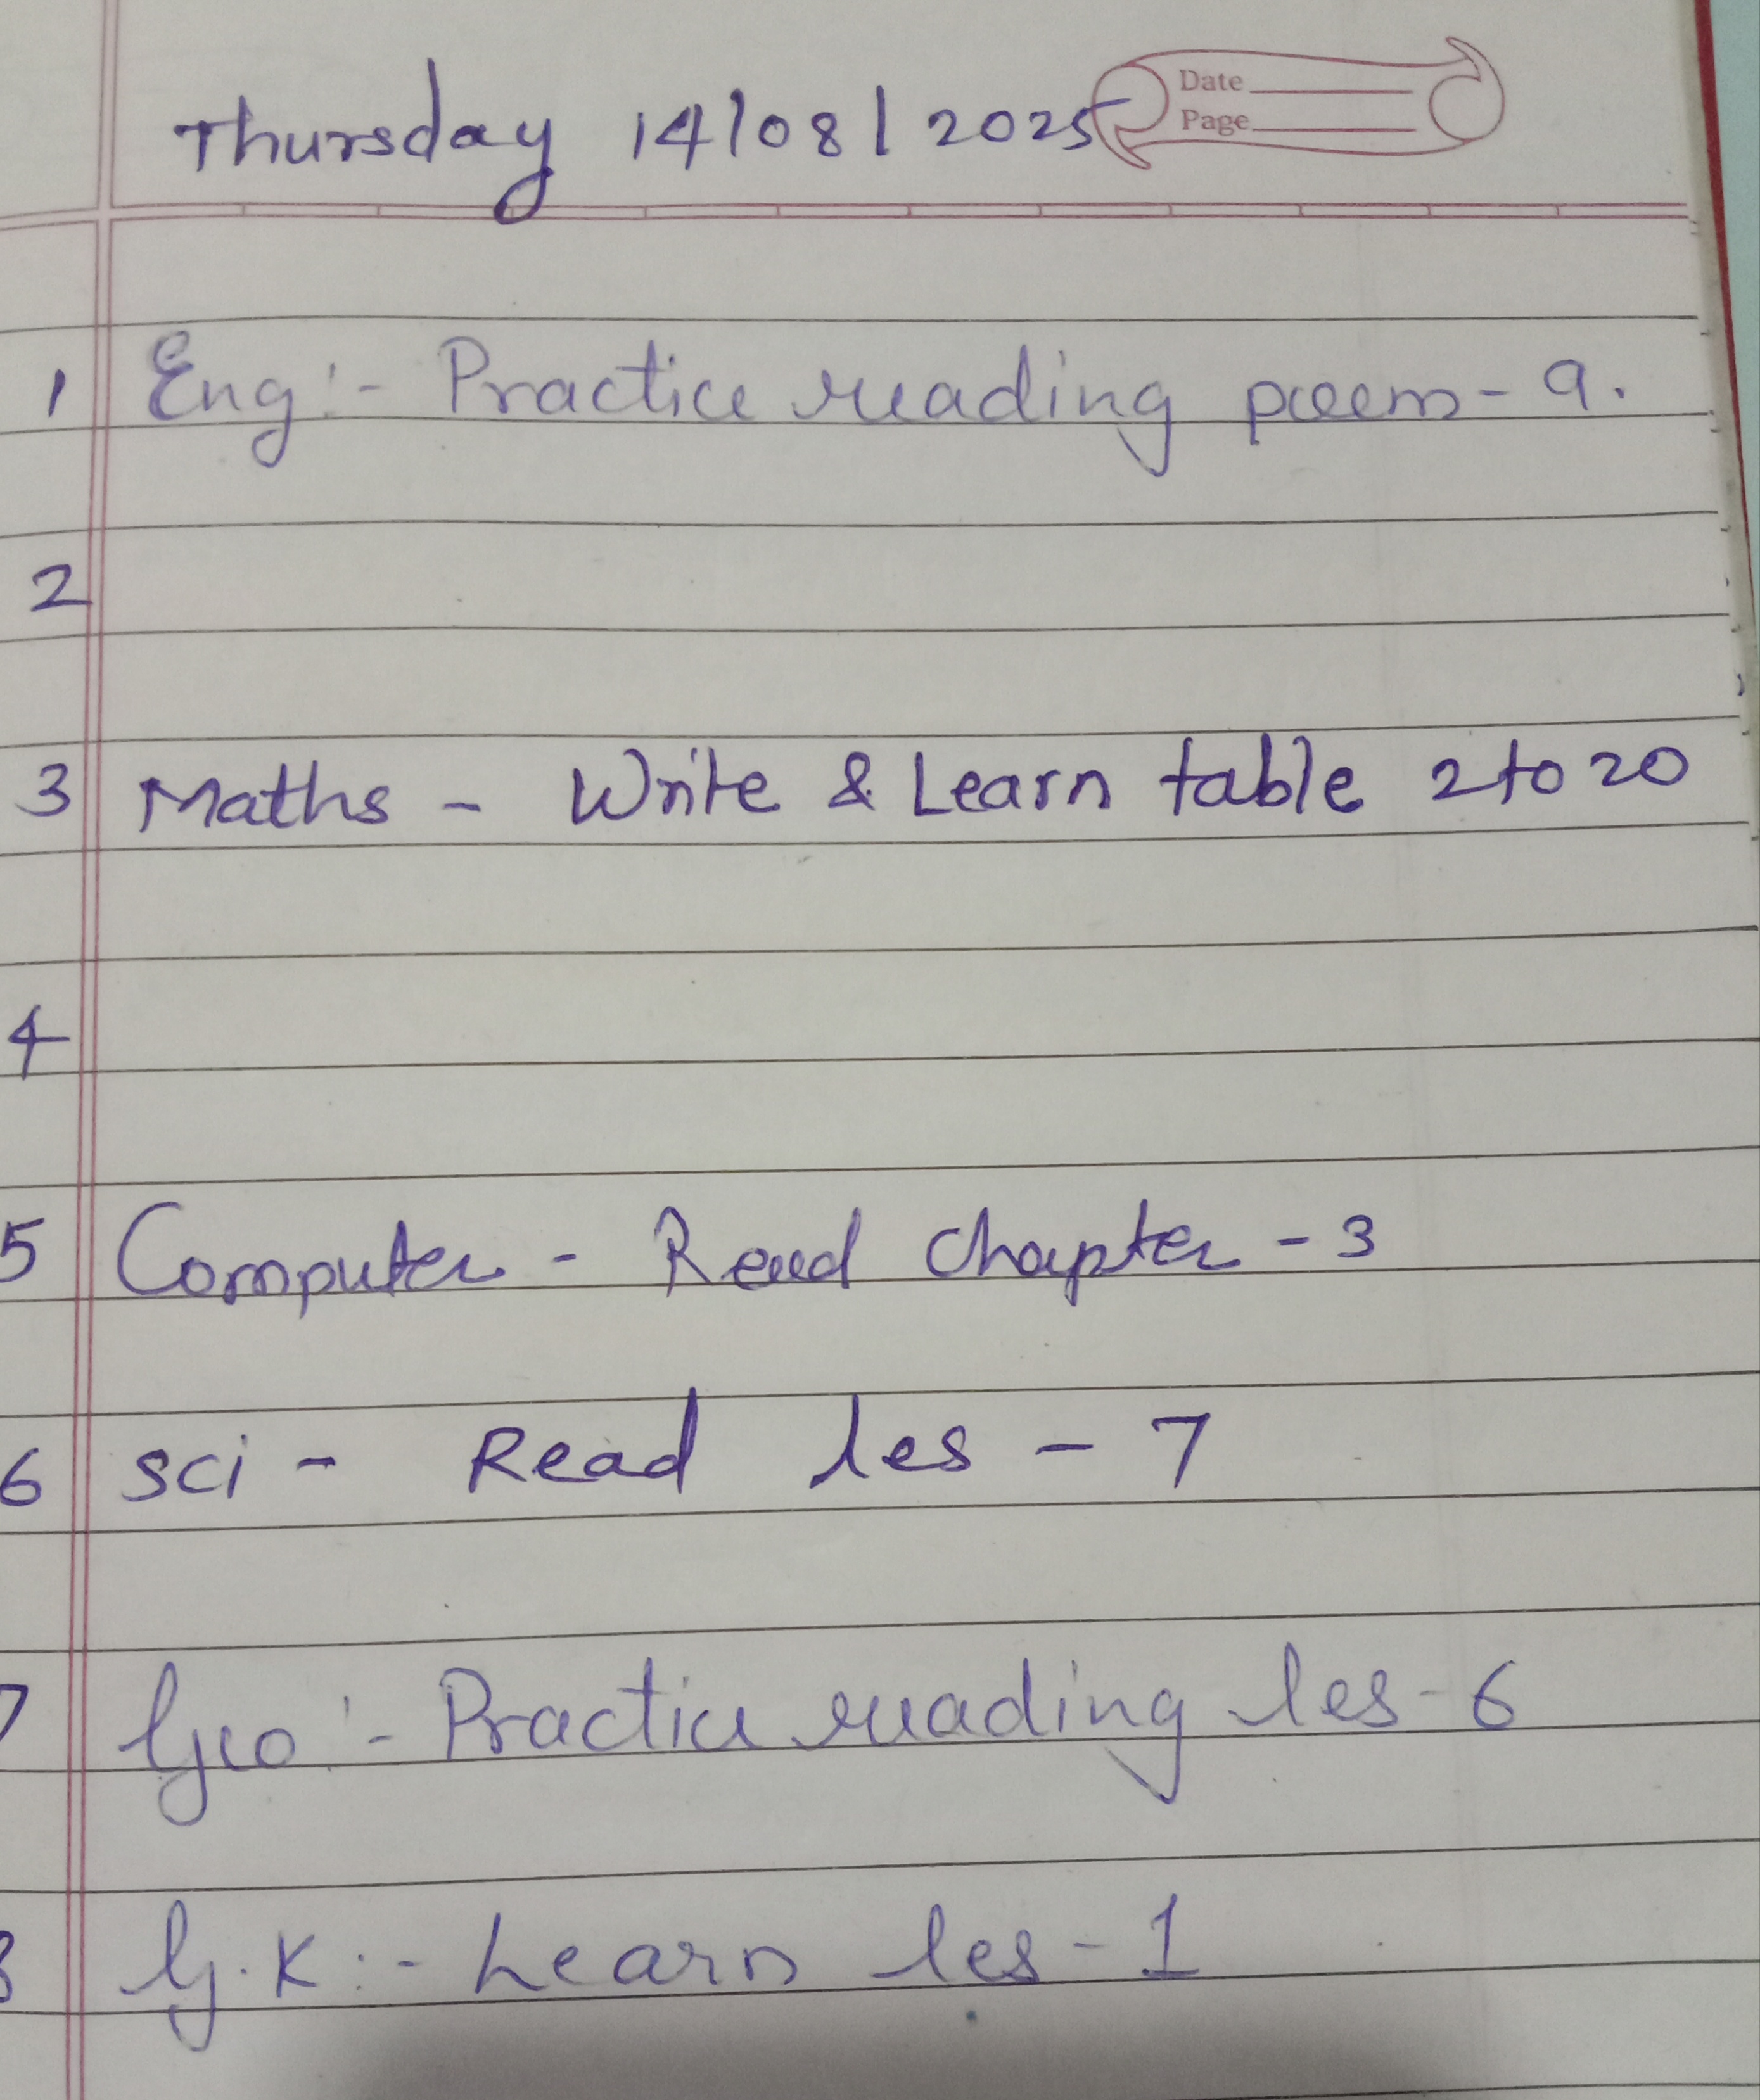 Date
Page
Thursday 14/08/2025
1 Eng:- Practice reading poem - 9.
2
3 Maths - Write & Learn table 2 to 20
4
5 Computer - Read chapter - 3
6 sci - Read les - 7
7 Geo :- Practice reading les - 6
8 G.K :- Learn les - 1